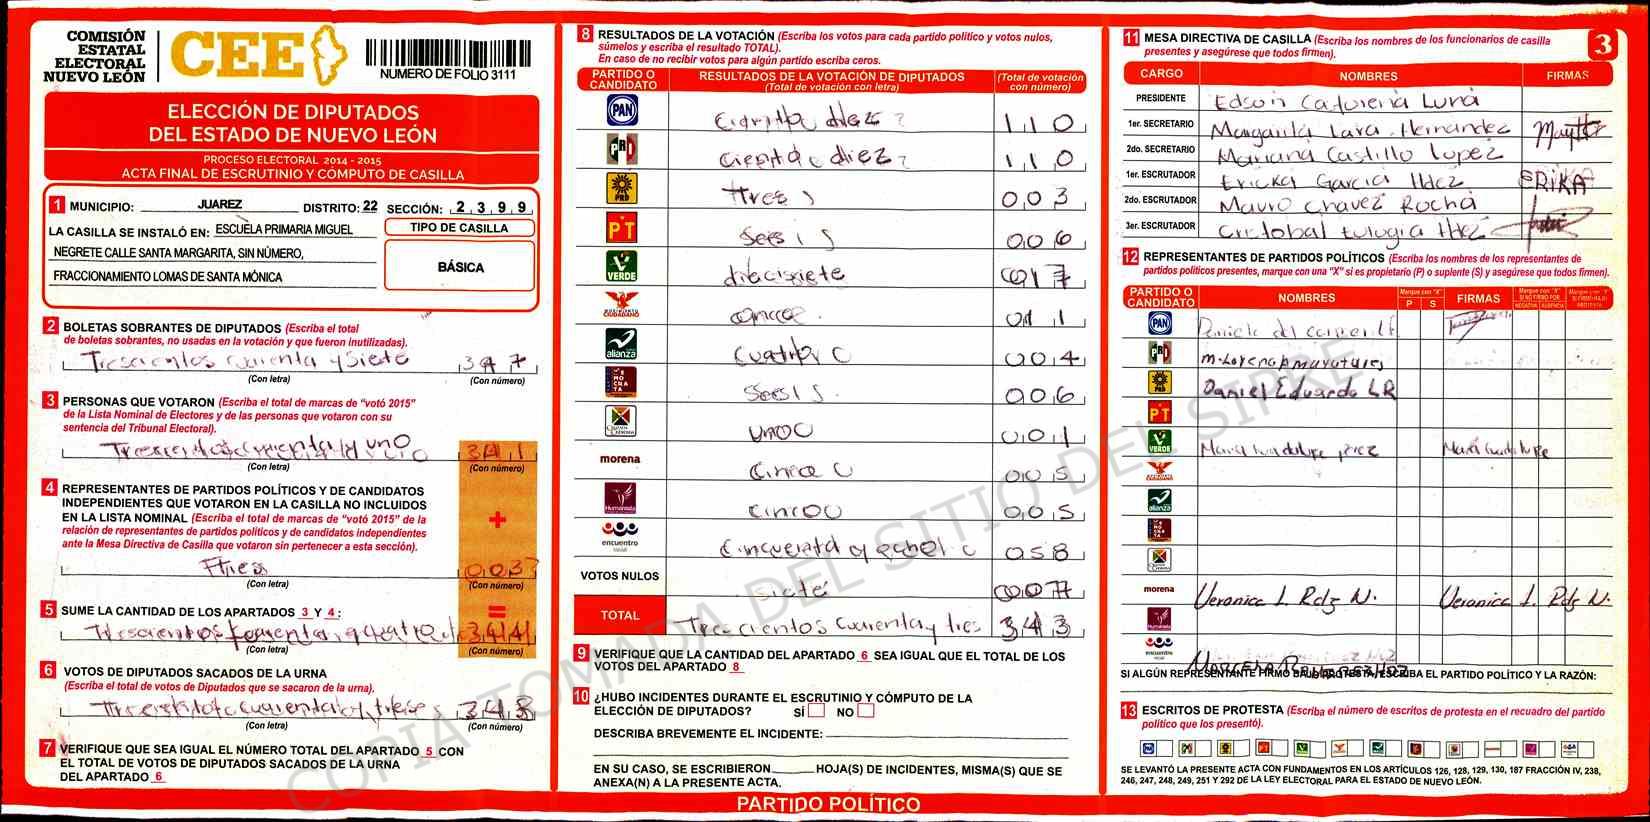 COMISIÓN
ESTATAL
ELECTORAL
NUEVO LEÓN
CEE
NUMERO DE FOLIO 3111
ELECCIÓN DE DIPUTADOS
DEL ESTADO DE NUEVO LEÓN
PROCESO ELECTORAL 2014 - 2015
ACTA FINAL DE ESCRUTINIO Y CÓMPUTO DE CASILLA
1 MUNICIPIO: JUAREZ DISTRITO: 22 SECCIÓN: 2,3,9,9
LA CASILLA SE INSTALÓ EN: ESCUELA PRIMARIA MIGUEL
NEGRETE CALLE SANTA MARGARITA, SIN NÚMERO,
FRACCIONAMIENTO LOMAS DE SANTA MÓNICA
TIPO DE CASILLA
BÁSICA
2 BOLETAS SOBRANTES DE DIPUTADOS (Escriba el total
de boletas sobrantes, no usadas en la votación y que fueron inutilizadas).
Trescientos cuarenta y siete 347
(Con letra) (Con número)
3 PERSONAS QUE VOTARON (Escriba el total de marcas de "votó 2015"
de la Lista Nominal de Electores y de las personas que votaron con su
sentencia del Tribunal Electoral).
341
(Con letra) (Con número)
4 REPRESENTANTES DE PARTIDOS POLÍTICOS Y DE CANDIDATOS
INDEPENDIENTES QUE VOTARON EN LA CASILLA NO INCLUIDOS
EN LA LISTA NOMINAL (Escriba el total de marcas de "votó 2015" de la
relación de representantes de partidos políticos y de candidatos independientes
ante la Mesa Directiva de Casilla que votaron sin pertenecer a esta sección).
+
tres 003
(Con letra) (Con número)
5 SUME LA CANTIDAD DE LOS APARTADOS 3 Y 4: =
344
(Con letra) (Con número)
6 VOTOS DE DIPUTADOS SACADOS DE LA URNA
(Escriba el total de votos de Diputados que se sacaron de la urna).
343
(Con letra) (Con número)
7 VERIFIQUE QUE SEA IGUAL EL NÚMERO TOTAL DEL APARTADO 5 CON
EL TOTAL DE VOTOS DE DIPUTADOS SACADOS DE LA URNA
DEL APARTADO 6
8 RESULTADOS DE LA VOTACIÓN (Escriba los votos para cada partido político y votos nulos,
súmelos y escriba el resultado TOTAL).
En caso de no recibir votos para algún partido escriba ceros.
PARTIDO O CANDIDATO RESULTADOS DE LA VOTACIÓN DE DIPUTADOS (Total de votación con letra) (Total de votación con número)
PAN diez 110
PRI ciento diez 110
PRD tres 003
PT seis 006
VERDE diecisiete 017
MOVIMIENTO CIUDADANO once 011
alianza cuatro 004
DEMOCRATA seis 006
uno 001
morena cinco 005
Humanista cinco 005
encuentro social cincuenta y ocho 058
VOTOS NULOS siete 007
TOTAL Trescientos cuarenta y tres 343
9 VERIFIQUE QUE LA CANTIDAD DEL APARTADO 6 SEA IGUAL QUE EL TOTAL DE LOS
VOTOS DEL APARTADO 8
10 ¿HUBO INCIDENTES DURANTE EL ESCRUTINIO Y CÓMPUTO DE LA
ELECCIÓN DE DIPUTADOS? SÍ NO
DESCRIBA BREVEMENTE EL INCIDENTE:
EN SU CASO, SE ESCRIBIERON HOJA(S) DE INCIDENTES, MISMA(S) QUE SE
ANEXA(N) A LA PRESENTE ACTA.
PARTIDO POLÍTICO
11 MESA DIRECTIVA DE CASILLA (Escriba los nombres de los funcionarios de casilla
presentes y asegúrese que todos firmen).
3
CARGO NOMBRES FIRMAS
PRESIDENTE Edson Luna
1er. SECRETARIO Margarita Lara Hernandez
2do. SECRETARIO Mariana Castillo Lopez
1er. ESCRUTADOR Ericka Garcia Hdez ERIKA
2do. ESCRUTADOR Mauro Chavez Rocha
3er. ESCRUTADOR Cristobal Eulogia Hdez
12 REPRESENTANTES DE PARTIDOS POLÍTICOS (Escriba los nombres de los representantes de
partidos políticos presentes, marque con una "X" si es propietario (P) o suplente (S) y asegúrese que todos firmen).
PARTIDO O CANDIDATO NOMBRES Marque con "X" P S FIRMAS Marque con "X" SI NO FIRMÓ POR NEGATIVA AUSENCIA
PAN Daniela del
PRI
PRD Daniel Eduardo LR
PT
VERDE Maria Guadalupe
alianza
morena Veronica L. Rdz N. Veronica L. Rdz N.
Humanista
encuentro social
SI ALGÚN REPRESENTANTE FIRMÓ BAJO PROTESTA, ESCRIBA EL PARTIDO POLÍTICO Y LA RAZÓN:
13 ESCRITOS DE PROTESTA (Escriba el número de escritos de protesta en el recuadro del partido
político que los presentó).
SE LEVANTÓ LA PRESENTE ACTA CON FUNDAMENTOS EN LOS ARTÍCULOS 126, 128, 129, 130, 187 FRACCIÓN IV, 238,
246, 247, 248, 249, 251 Y 292 DE LA LEY ELECTORAL PARA EL ESTADO DE NUEVO LEÓN.
COPIA TOMADA DEL SITIO DEL SIPRE